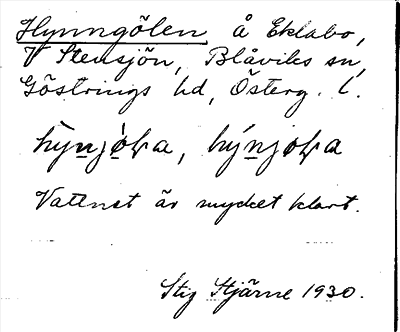 Hynngölen å Eklabo,
V Stensjön, Blåviks sn,
Göstrings hd, Österg. l.
Vattnet är mycket klart.
Stig Stjärne 1930.